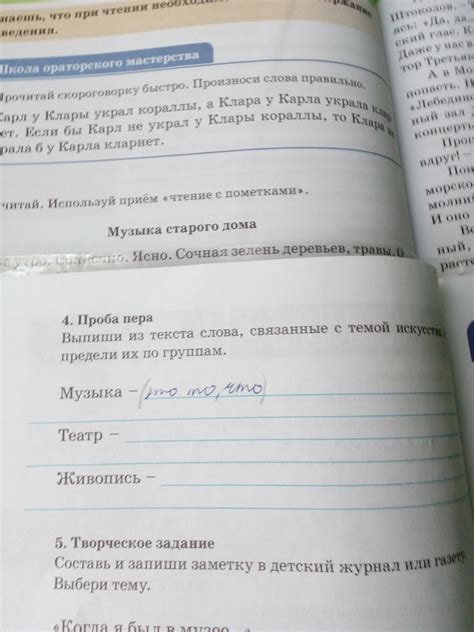 знаешь, что при чтении необходимо
ведения.
Школа ораторского мастерства
Прочитай скороговорку быстро. Произноси слова правильно.
Карл у Клары украл кораллы, а Клара у Карла украла клар
нет. Если бы Карл не украл у Клары кораллы, то Клара не
крала б у Карла кларнет.
читай. Используй приём «чтение с пометками».
Музыка старого дома
утро. Солнечно. Ясно. Сочная зелень деревьев, травы.
4. Проба пера
Выпиши из текста слова, связанные с темой искусства,
предели их по группам.
Музыка – (это то, что)
Театр –
Живопись –
5. Творческое задание
Составь и запиши заметку в детский журнал или газету.
Выбери тему.
«Когда я был в музее...»
Штоколов.
ясь: «Да, да
ский глас. К
Даже у наст
тор Третьяк
А в Мо
попасть. И
«Лебедин
ный зал
концерт
Про
вдруг! –
Пок
морско
молни
И оно
расте